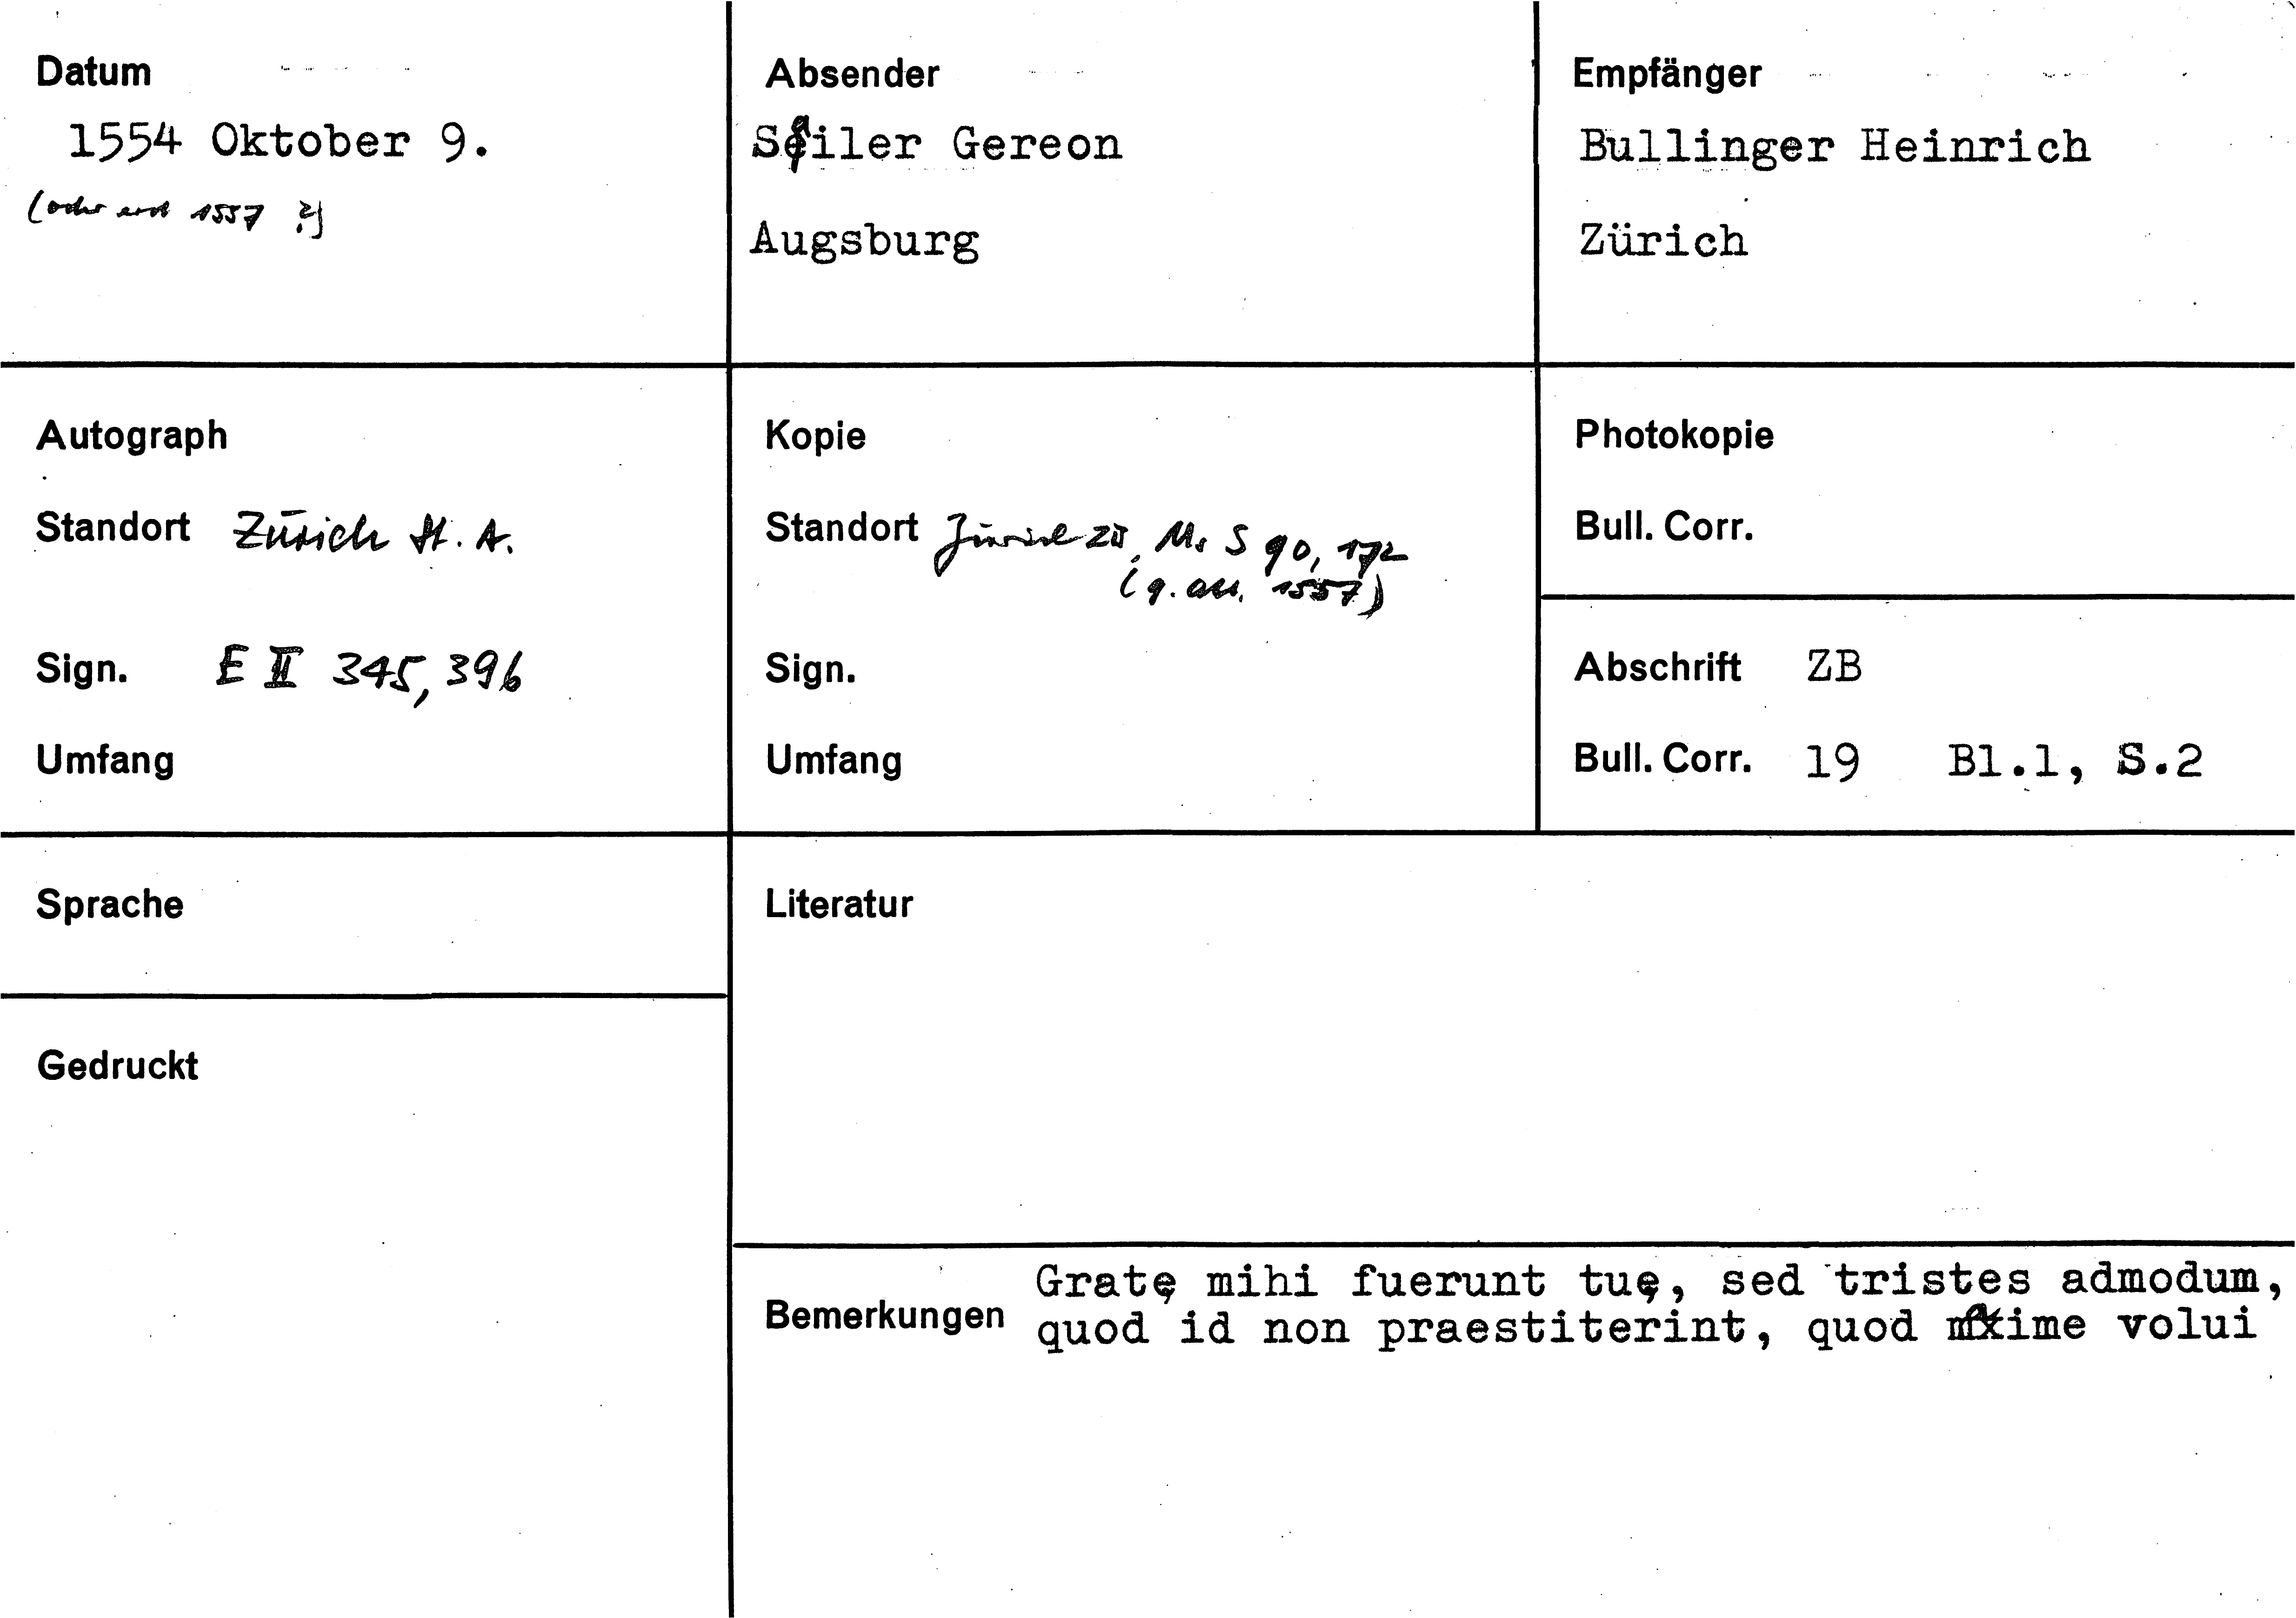 Datum
1554 Oktober 9.
(oder erst 1557 ?)
Absender
Sailer Gereon
Augsburg
Empfänger
Bullinger Heinrich
Zürich
Autograph
Standort Zürich St. A.
Sign. E II 345, 396
Umfang
Kopie
Standort Zürich ZB, Ms S 90, 172
1557)
Sign.
Umfang
Photokopie
Bull. Corr.
Abschrift ZB
Bull. Corr. 19 Bl.1, S.2
Sprache
Gedruckt
Literatur
Bemerkungen
Gratę mihi fuerunt tuę, sed tristes admodum,
quod id non praestiterint, quod maxime volui